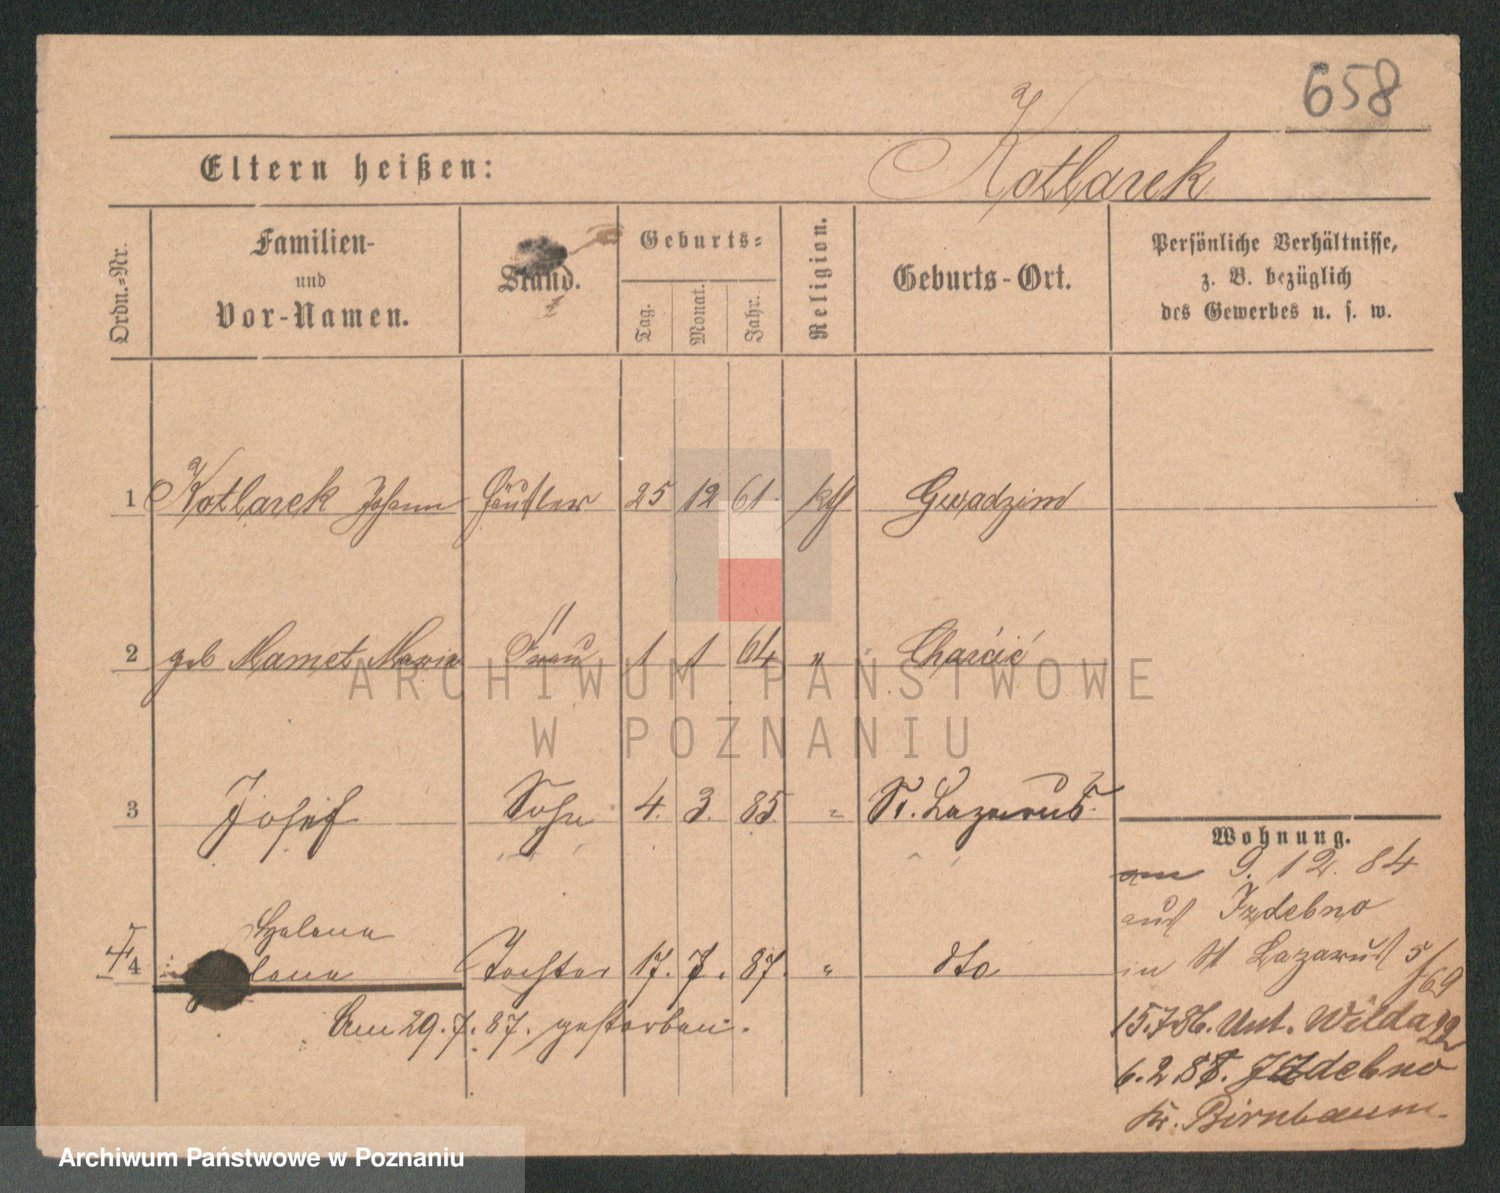 658
Eltern heißen: Kotlarek
Ordn.-Nr.
Familien-
und
Vor-Namen.
Stand.
Geburts-
Tag.
Monat.
Jahr.
Religion.
Geburts-Ort.
Persönliche Verhältnisse,
z. B. bezüglich
des Gewerbes u. s. w.
1 Kotlarek Johann Häusler 25 12 61. kth Gwadzim
2 geb Mamet Maria Frau 1 1 64 " Charcic
3 Josef Sohn 4. 3. 85. " St. Lazarus.
Wohnung.
am 9. 12. 84
aus Izdebno
in St Lazarus 5/69
15.7.86. Unt. Wilda 22
6. 2 88. Izdebno
Kr. Birnbaum.
Helena
† 4 lena Tochter 17. 7. 87. " dto
Am 29. 7. 87. gestorben.
ARCHIWUM PAŃSTWOWE
W POZNANIU
Archiwum Państwowe w Poznaniu